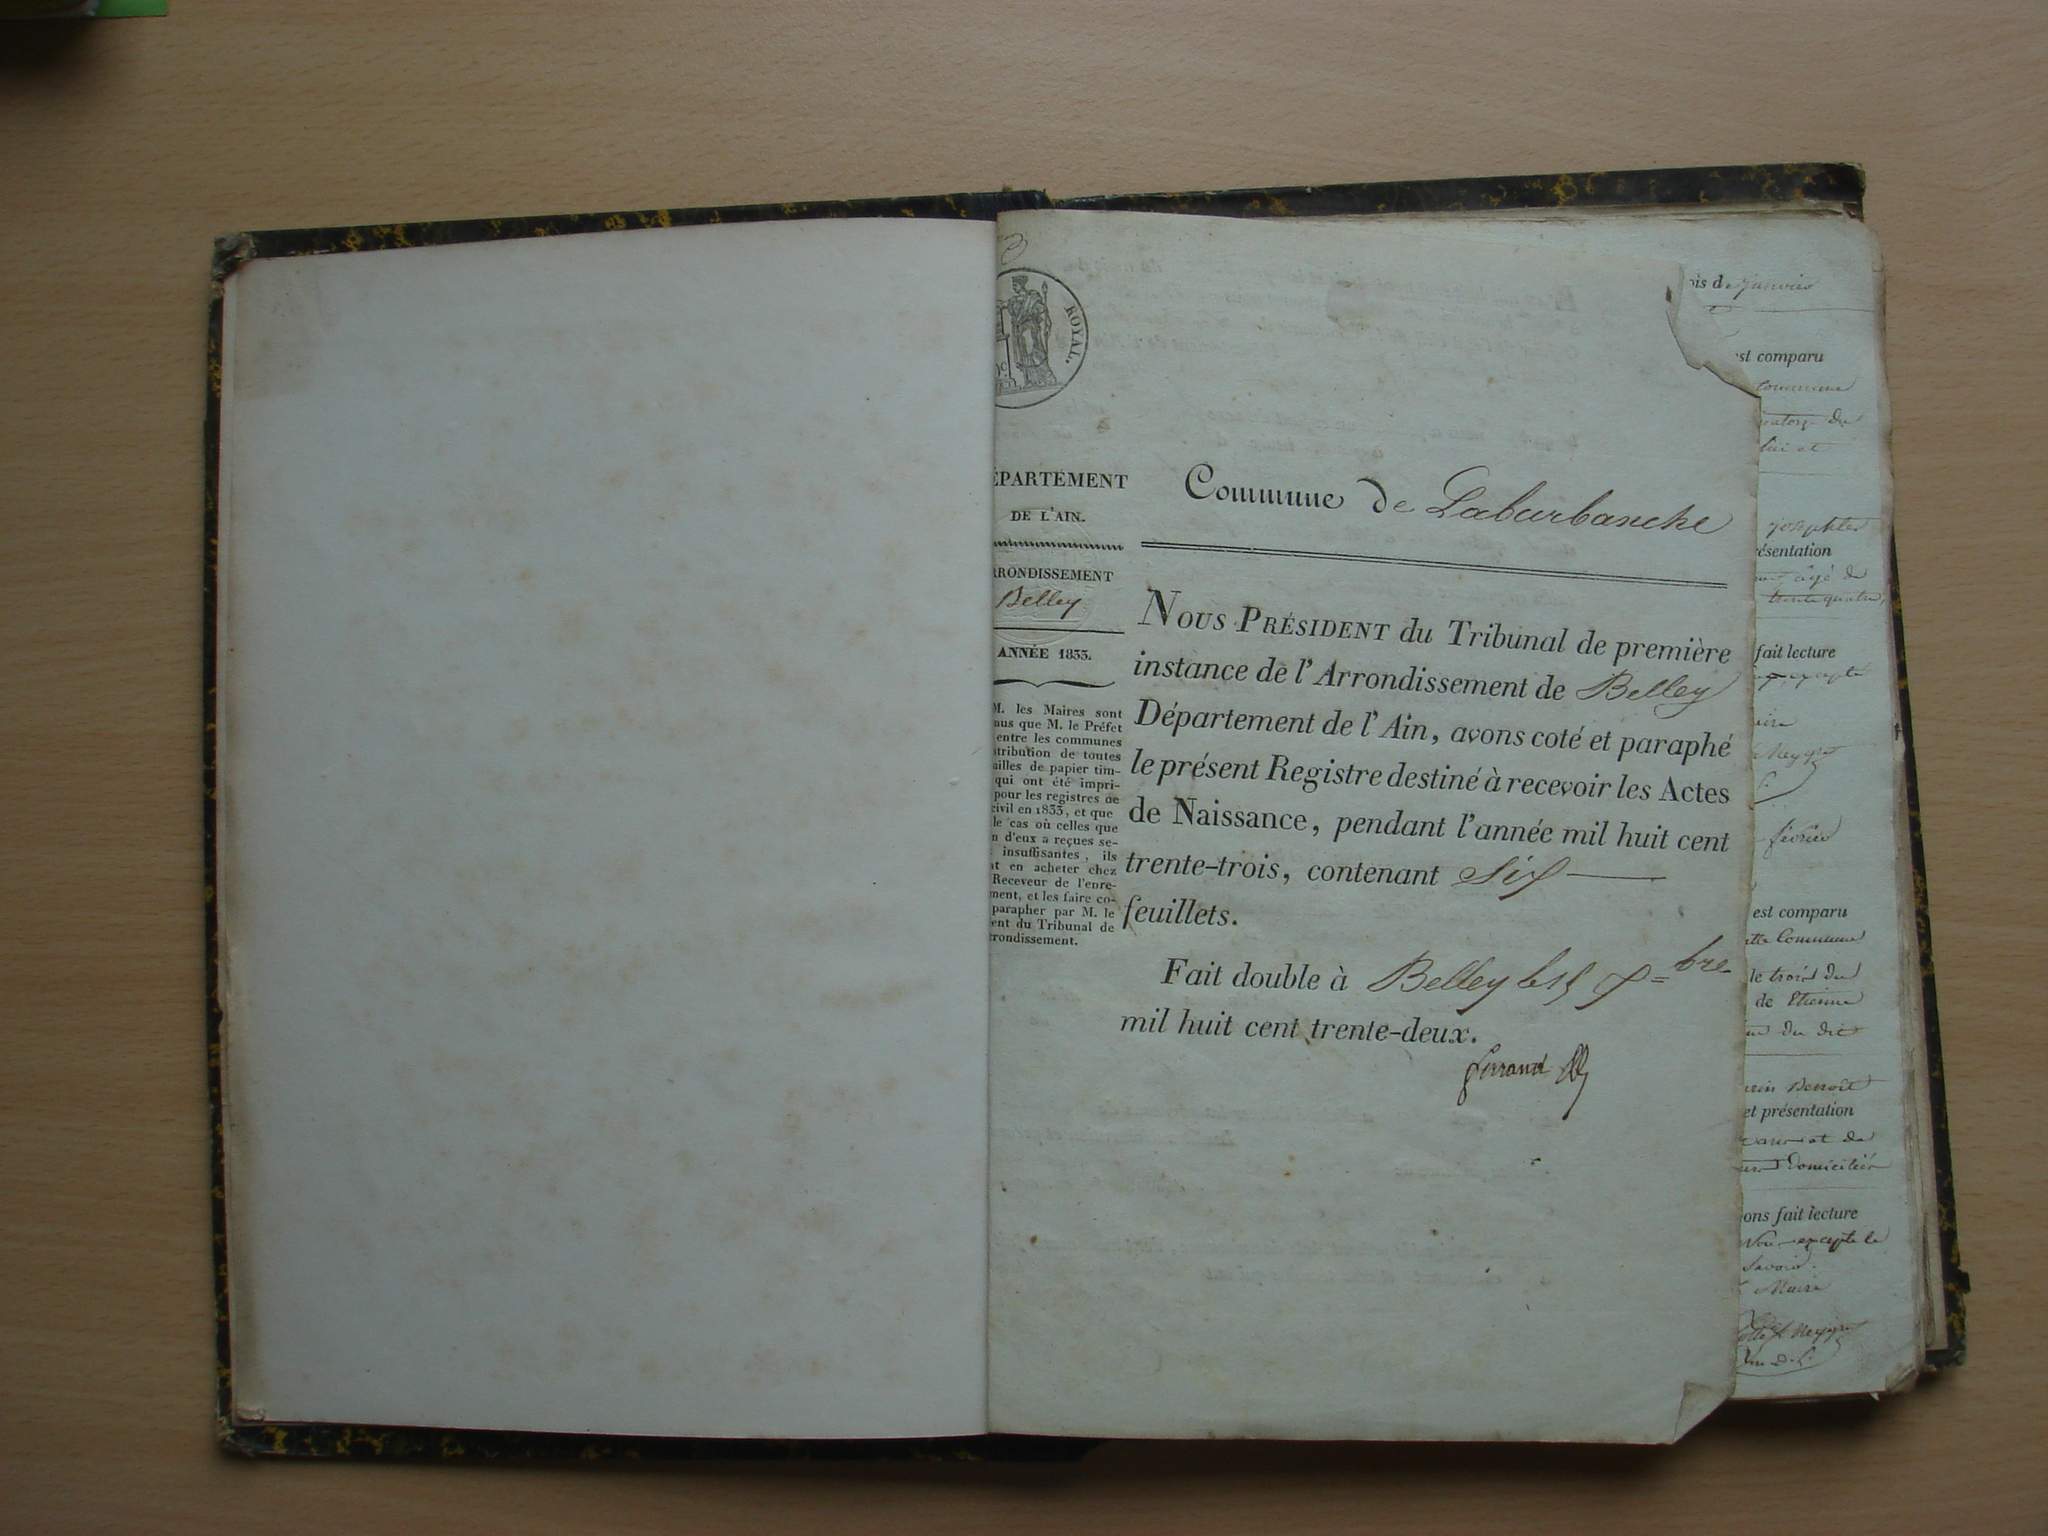 ROYAL.
ÉPARTEMENT
DE L'AIN.
RRONDISSEMENT
Belley
ANNÉE 1833.
M. les Maires sont
nus que M. le Préfet
entre les communes
stribution de toutes
uilles de papier tim-
qui ont été impri-
pour les registres de
civil en 1833, et que
le cas où celles que
n d'eux a reçues se-
insuffisantes, ils
nt en acheter chez
Receveur de l'enre-
ment, et les faire co-
parapher par M. le
ent du Tribunal de
rrondissement.
Commune de Laburbanche
NOUS PRÉSIDENT du Tribunal de première
instance de l'Arrondissement de Belley
Département de l'Ain, avons coté et paraphé
le présent Registre destiné à recevoir les Actes
de Naissance, pendant l'année mil huit cent
trente-trois, contenant Six
feuillets.
Fait double à Belley le 15 X=bre
mil huit cent trente-deux.
ois de janvier
est comparu
commune
du
lui et
josephte
ésentation
âgé de
trente quatre,
fait lecture
excepté
aire
Neyret
février
est comparu
tte Commune
le trois du
de Etienne
du dit
Benoît
et présentation
et de
domiciliés
ons fait lecture
Nous excepté le
Savoir.
Maire
Neyret